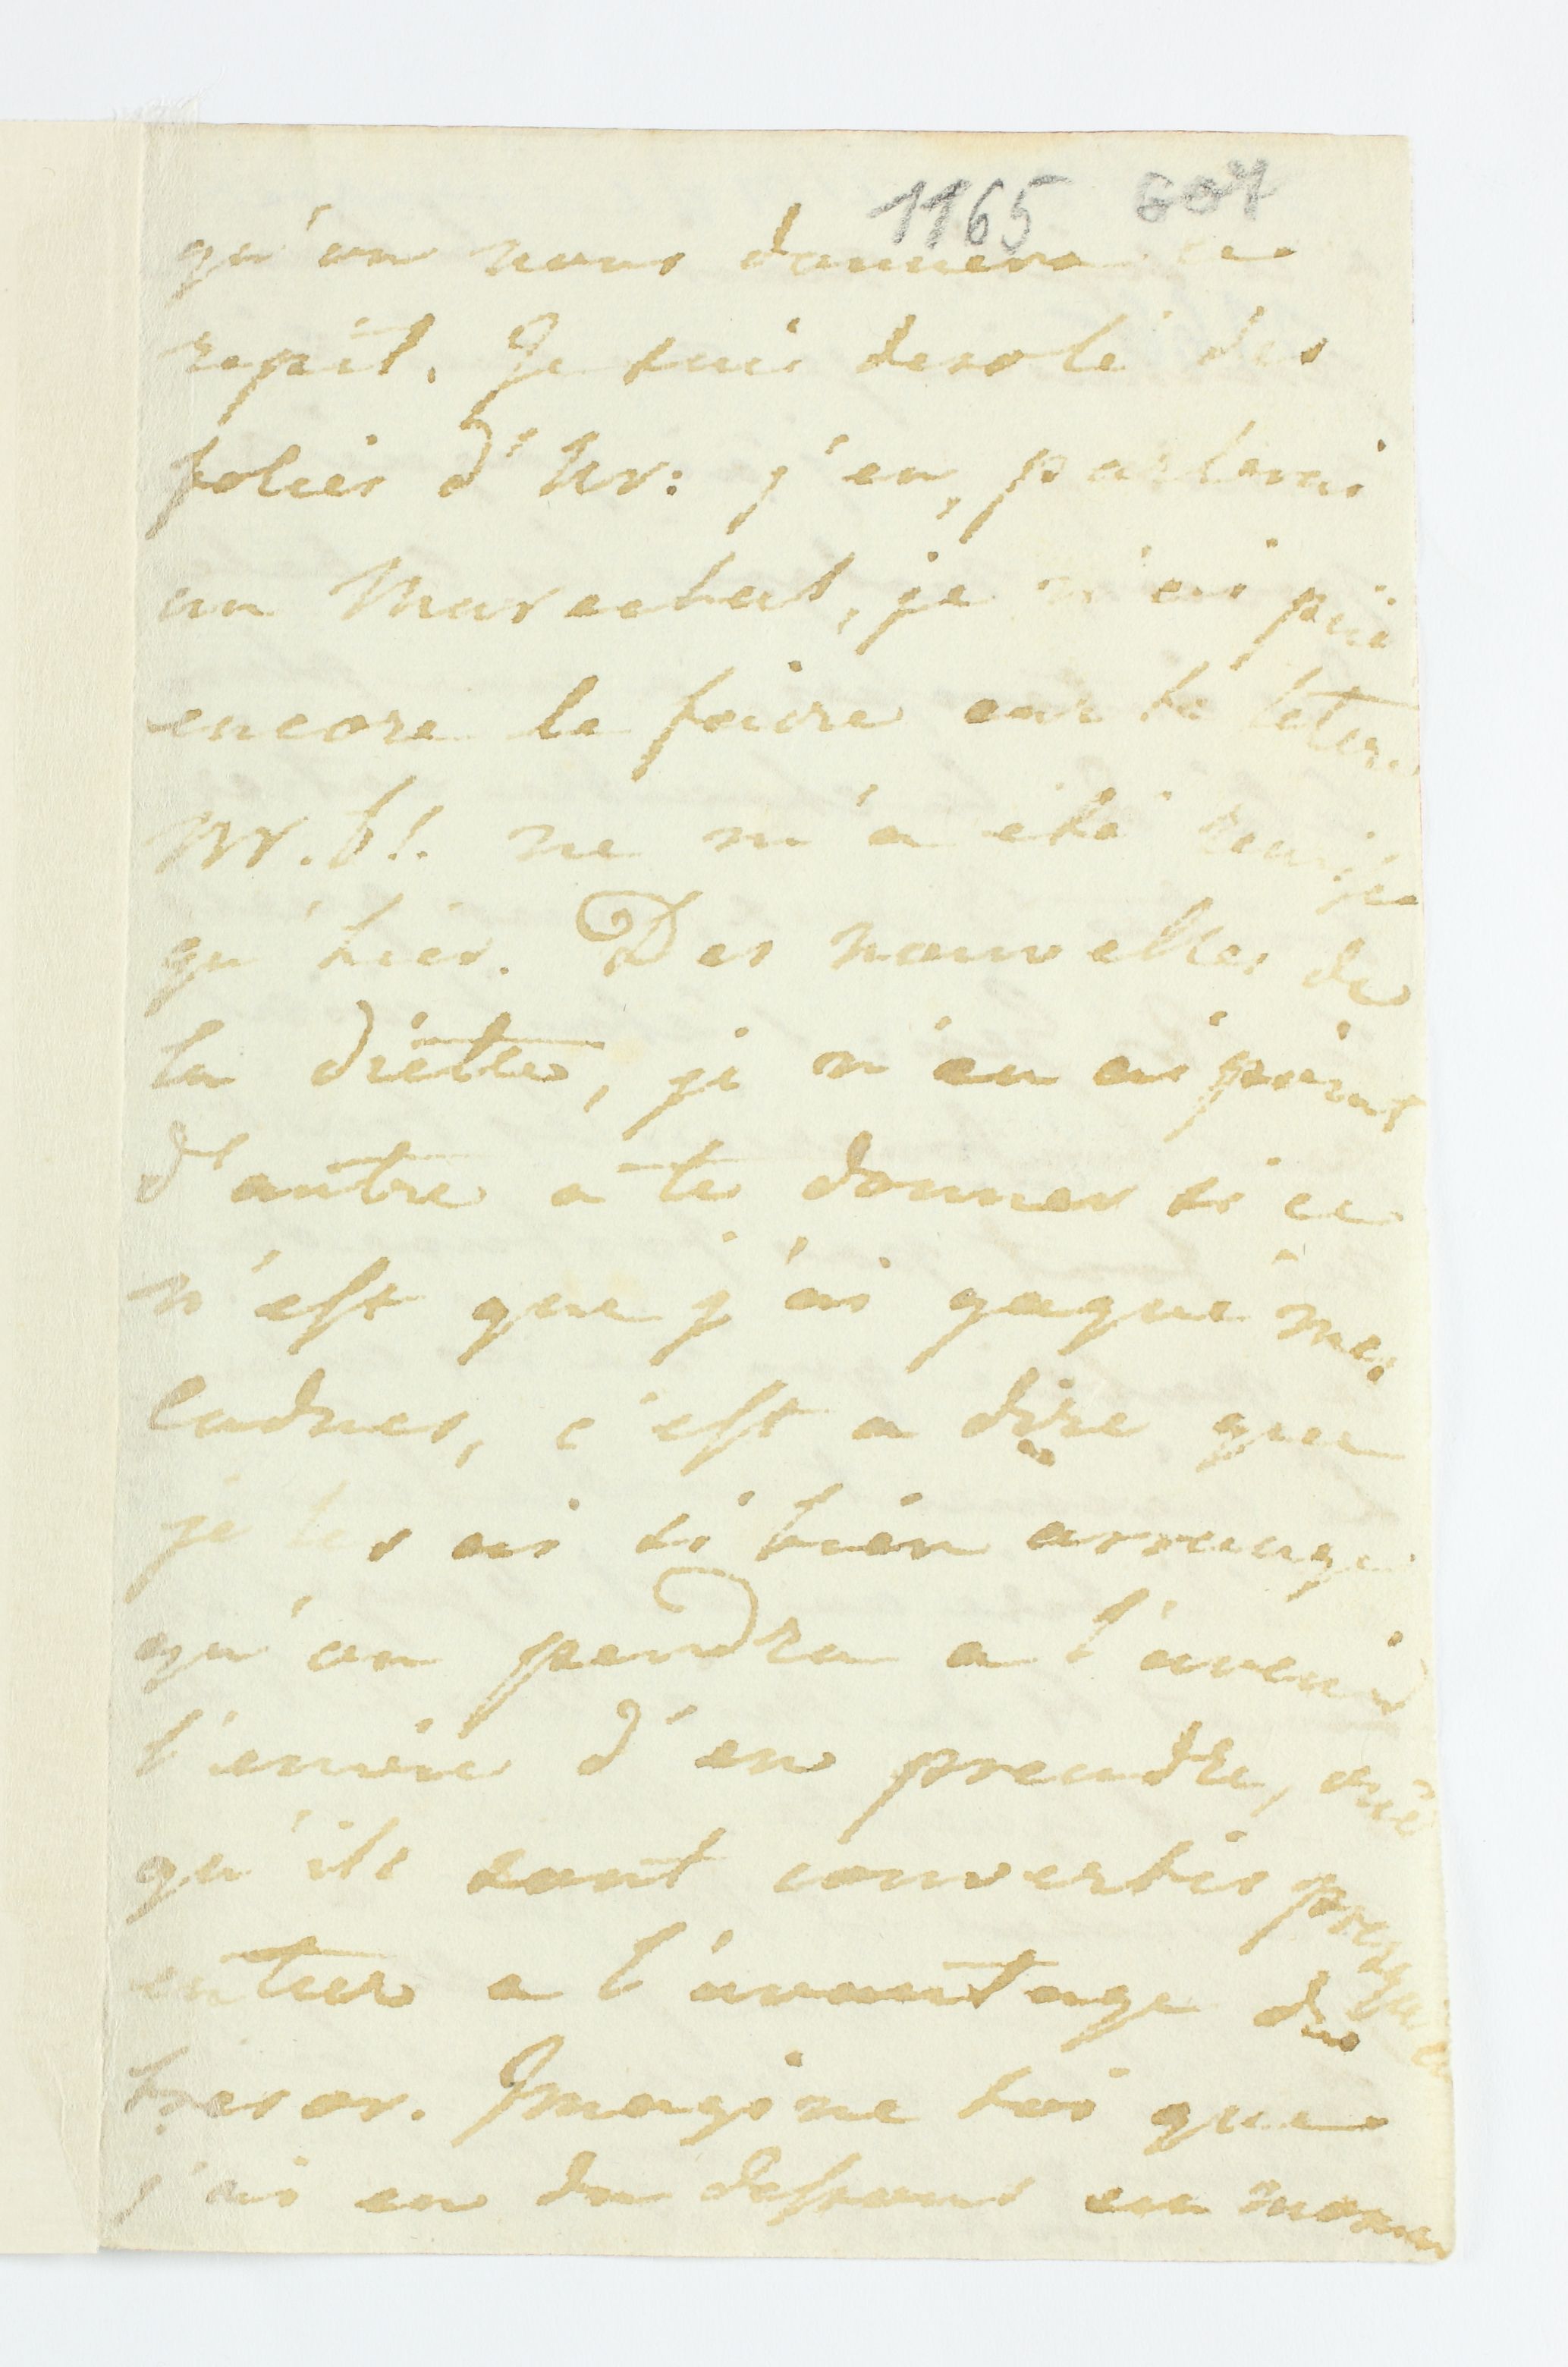 1165 607
qu'on nous donnera ce
repit. Je suis desolé des
folies d'Ur: j'en parlerai
au Marechal, je n'ai pûe
encore le faire car ta letter
Nr. 61. ne m'a eté remise
qu'hier. Des nouvelles de
la diette, je n'en ai point
d'autre a te donner si ce
n'est que j'ai gagné mes
cadues, c'est a dire que
je les ai si bien arrangé
qu'on perdra a l'avenir
l'envie d'en prendre, vûe
qu'ils sont convertis presqu'en
entier a l'avantage du
tresor. Imagine toi que
j'ai eu du dessous en nomen